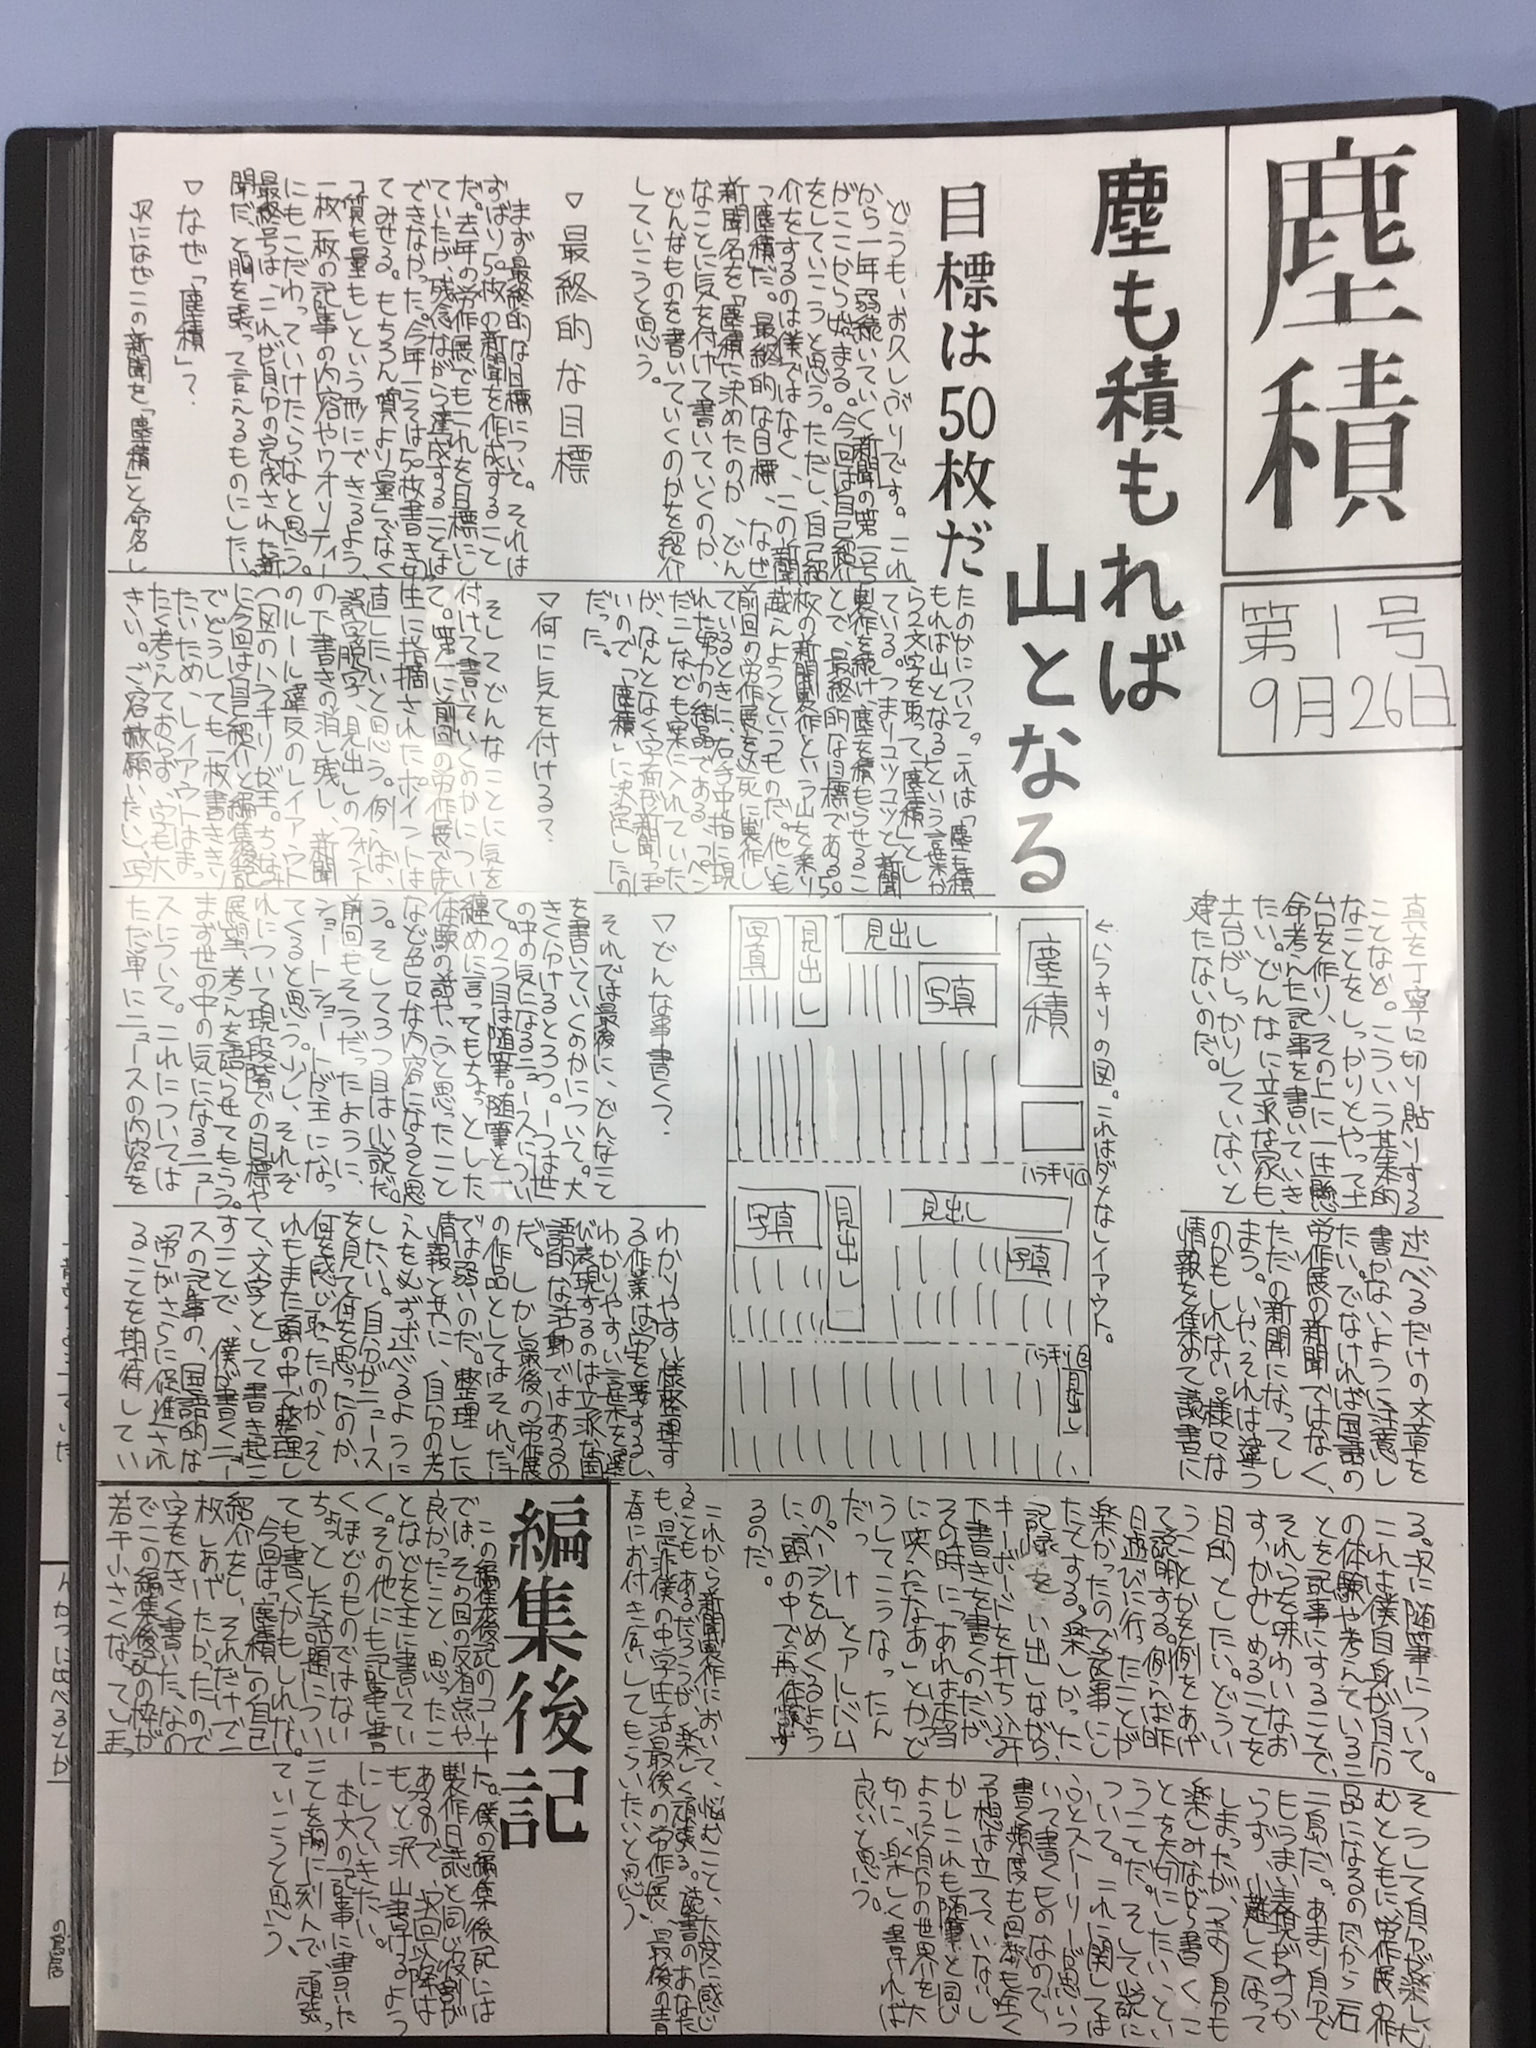 塵積
第1号
9月26日
塵も積もれば
山となる
目標は50枚だ
どうも、お久しぶりです。これ
から一年弱続いていく新聞の第一号
がここから始まる。今回は自己紹介
をしていこうと思う。ただし、自己紹
介をするのは僕ではなく、この新聞
「塵積」だ。最終的な目標、なぜ
新聞名を「塵積」に決めたのか、どん
なことに気を付けて書いていくのか、
どんなものを書いていくのかを紹介
していこうと思う。
▽最終的な目標
まず最終的な目標について。それは
ずばり50枚の新聞を作成すること
だ。去年の労作展でもこれを目標にし
ていたが、残念ながら達成することは
できなかった。今年こそは50枚書きせ
てみせる。もちろん「質より量」でなく
「質も量も」という形にできるよう、
一枚一枚の記事の内容やクオリティー
にもこだわっていけたらなと思う。
最終号は、これぞ自分の完成された新
聞だ、と胸を張って言えるものにしたい。
▽なぜ「塵積」？
次になぜこの新聞を「塵積」と命名し
たのかについて。これは「塵も積
もれば山となる」という言葉か
ら2文字を取って「塵積」とし
ている。つまりコツコツと新聞
製作を続け、塵を積もらせるこ
とで、最終的な目標である50
枚の新聞製作という山を乗り
越えようというものだ。他にも
前回の労作展を必死に製作し
ているときに、右手中指に現
れた努力の結晶である、「ペン
だこ」なども案に入れていた
が、なんとなく字面が新聞っぽ
いので「塵積」に決定したの
だった。
▽何に気を付ける？
そしてどんなことに気を
付けて書いていくのかについ
て。第一に前回の労作展で先
生に指摘されたポイントは
直したいと思う。例えば、
誤字脱字、見出しのフォント
の下書きの消し残し、新聞
のルール違反のレイアウト
(図のハラキリ)が主。ちなみ
に今回は自己紹介と編集後記
でどうしても一枚書ききり
たいため、レイアウトはまっ
たく考えておらず、字も大
きい。ご容赦願いたい。写
真を丁寧に切り貼りする
ことなど。こういう基本的
なことをしっかりとやって土
台を作り、その上に一生懸
命考えた記事を書いていき
たい。どんなに立派な家も、
土台がしっかりしていないと
建たないのだ。
←ハラキリの図。これはダメなレイアウト。
塵積
見出し
写真
見出し
写真
ハラキリ①
見出し
写真
見出し
写真
ハラキリ②
見出し
▽どんな事書く？
それでは最後に、どんなこと
を書いていくのかについて。大
きく分けると3つ。一つは世
の中の気になるニュースについ
て。2つ目は随筆。随筆と一
纏めに言ってもちょっとした
体験の話や、ふと思ったこと
など色々な内容になると思
う。そして3つ目は小説だ。
前回もそうだったように、
ショートショートが主になっ
てくると思う。少し、それぞ
れについて現段階での目標や
展望、考えを語らせてもらう。
まず世の中の気になるニュー
スについて。これについては
ただ単にニュースの内容を
述べるだけの文章を
書かないように注意し
たい。でなければ国語の
労作展の新聞ではなく、
ただの新聞になってし
まう。いや、それは違う
のかもしれない。様々な
情報を集めて読書に
わかりやすい様整理す
る作業は労を要するし、
わかりやすい言葉を選
び表現するのは立派な国
語的な活動ではあるの
だ。しかし最後の労作展
の作品としてはそれだけ
では弱いのだ。整理した
情報と共に、自分の考
えを必ず述べるように
したい。自分がニュース
を見て何を思ったのか、
何を感じ取ったのか、そ
れもまた頭の中で整理し
て、文字として書き起こ
すことで、僕が書くニュー
スの記事の、国語的な
「労」がさらに促進され
ることを期待してい
る。次に随筆について。
これは僕自身が自分
の体験や考えているこ
とを記事にすることで、
それらを味わいなお
す、かみしめることを
目的としたい。どうい
うことかを例をあげ
て説明する。例えば昨
日遊びに行ったことが
楽しかったので記事にし
たとする。楽しかった、
記録を い出しながら、
キーボードを打ち込み
下書きを書くのだが、
その時に「あれは本当
に楽しかったなあ」とかど
うしてこうなったん
だっけ」とアルバム
のページをめくるよう
に、頭の中で再体験す
るのだ。
そうして自分が楽し
むとともに、労作展の作
品になるのだから一石
二鳥だ。あまり自分で
もうまい表現がみつか
らず、小難しくなって
しまったが、つまり自分も
楽しみながら書くこ
とを大切にしたいとい
うことだ。そして小説に
ついて。これに関しては
ふとストーリーが思いつ
いて書くものなので、
書く頻度も回数も全く
予想は立てていないし
かしこれも随筆と同じ
ように自分の世界を大
切に、楽しく書ければ
良いと思う。
これから新聞製作において、悩むこと、大変に感じ
ることもあるだろうが、楽しく頑張る。読書のあなた
も、是非僕の中学生活最後の労作展、最後の青
春にお付き合いしてもらいたいと思う。
編集後記
この編集後記のコーナー
では、その回の反省点や
良かったこと、思ったこ
となどを主に書いてい
く。その他にも記事に書
くほどのものではない
ちょっとした話題につい
ても書くかもしれない。
今回は「塵積」の自己
紹介をし、それだけで一
枚しあげたかったので
字を大きく書いた。なの
でこの編集後記の枠が
若干小さくなってしまっ
た。僕の編集後記には
製作日誌と同じ役割が
あるので、次回以降は
もっと沢山書けるよう
にしていきたい。
本文の記事に書いた
ことを胸に刻んで、頑張っ
ていこうと思う。